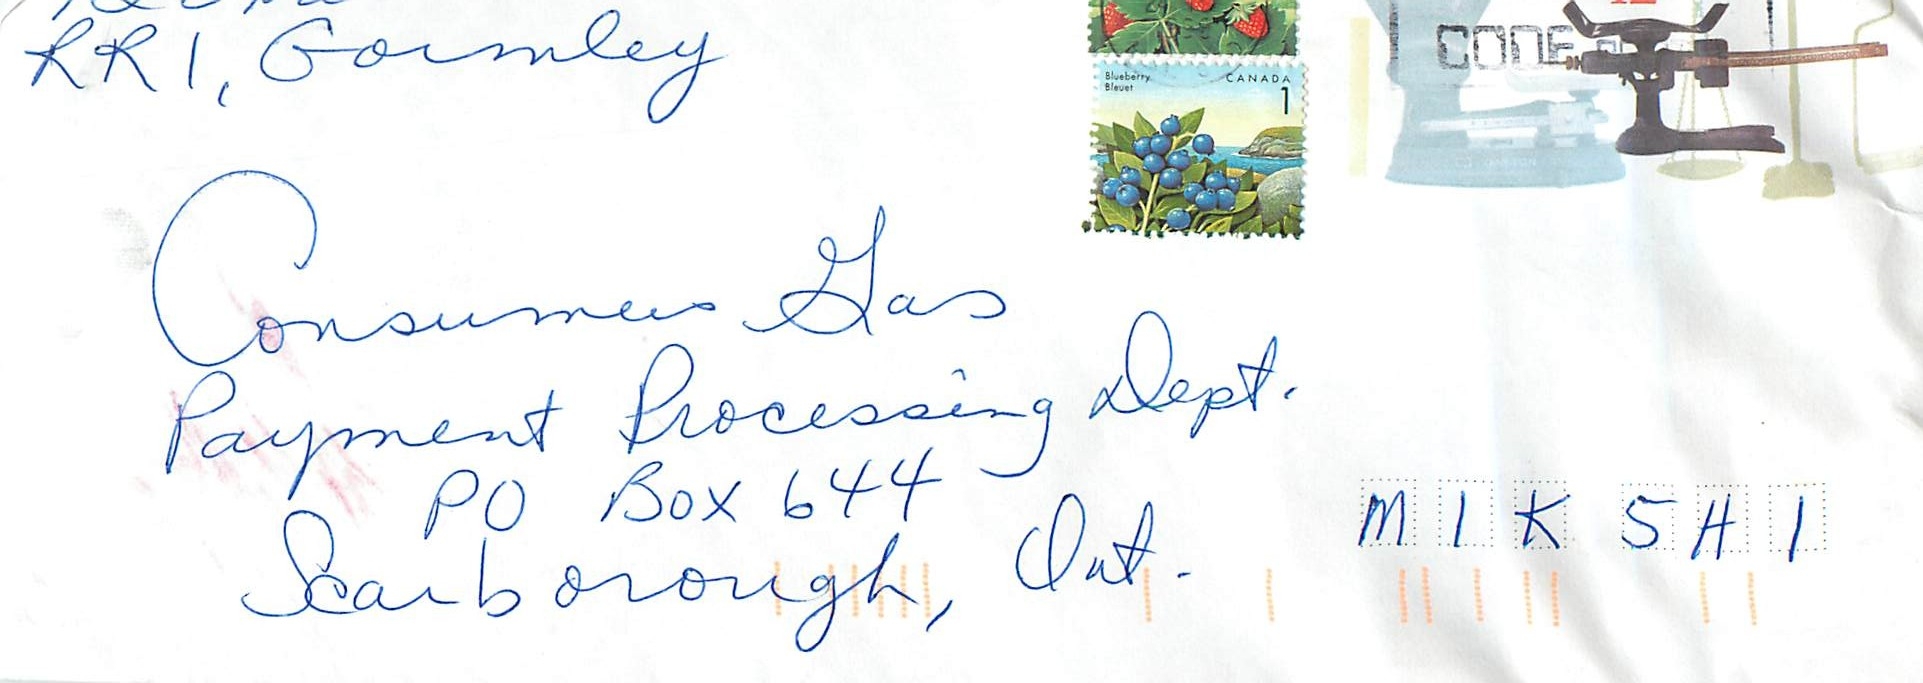 RR 1, Gormley
CODE
Blueberry CANADA
Bleuet 1
Consumers Gas
Payment Processing Dept.
PO Box 644
Scarborough, Ont.
M1K 5H1